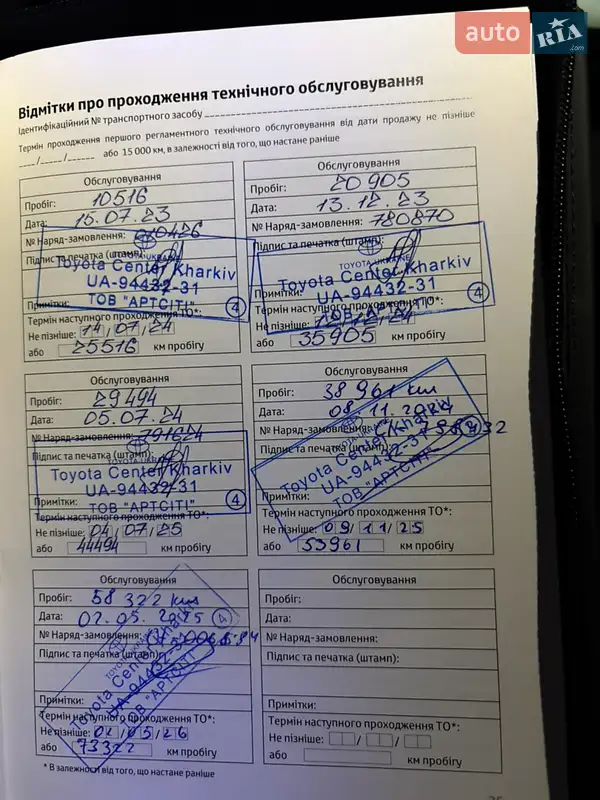 auto RIA.com
Відмітки про проходження технічного обслуговування
Ідентифікаційний № транспортного засобу
Термін проходження першого регламентного технічного обслуговування від дати продажу не пізніше
__/__/____ або 15 000 км, в залежності від того, що настане раніше
Обслуговування
Пробіг: 10516
Дата: 15.07.23
№ Наряд-замовлення:
Підпис та печатка (штамп):
TOYOTA UKRAINE
Toyota Center Kharkiv
UA-94432-31
ТОВ "АРТСІТІ" 4
Примітки:
Термін наступного проходження ТО*:
Не пізніше: 14/07/24
або 25516 км пробігу
Обслуговування
Пробіг: 20905
Дата: 13.12.23
№ Наряд-замовлення: 780870
Підпис та печатка (штамп):
TOYOTA UKRAINE
Toyota Center Kharkiv
UA-94432-31
ТОВ "АРТСІТІ" 4
Примітки:
Термін наступного проходження ТО*:
Не пізніше: 12/12/24
або 35905 км пробігу
Обслуговування
Пробіг: 29494
Дата: 05.07.24
№ Наряд-замовлення: 791624
Підпис та печатка (штамп):
TOYOTA UKRAINE
Toyota Center Kharkiv
UA-94432-31
ТОВ "АРТСІТІ" 4
Примітки:
Термін наступного проходження ТО*:
Не пізніше: 04/07/25
або 44494 км пробігу
Обслуговування
Пробіг: 38961 км
Дата: 08.11.2024
№ Наряд-замовлення:
Підпис та печатка (штамп):
Toyota Center Kharkiv
UA-94432-31
ТОВ "АРТСІТІ" 4
Примітки:
Термін наступного проходження ТО*:
Не пізніше: 09/11/25
або 53961 км пробігу
Обслуговування
Пробіг: 58322 км
Дата: 02.05.2025
№ Наряд-замовлення:
Підпис та печатка (штамп):
TOYOTA UKRAINE
Toyota Center Kharkiv
UA-94432-31
ТОВ "АРТСІТІ" 4
Примітки:
Термін наступного проходження ТО*:
Не пізніше: 02/05/26
або 73322 км пробігу
Обслуговування
Пробіг:
Дата:
№ Наряд-замовлення:
Підпис та печатка (штамп):
Примітки:
Термін наступного проходження ТО*:
Не пізніше: / /
або км пробігу
* В залежності від того, що настане раніше